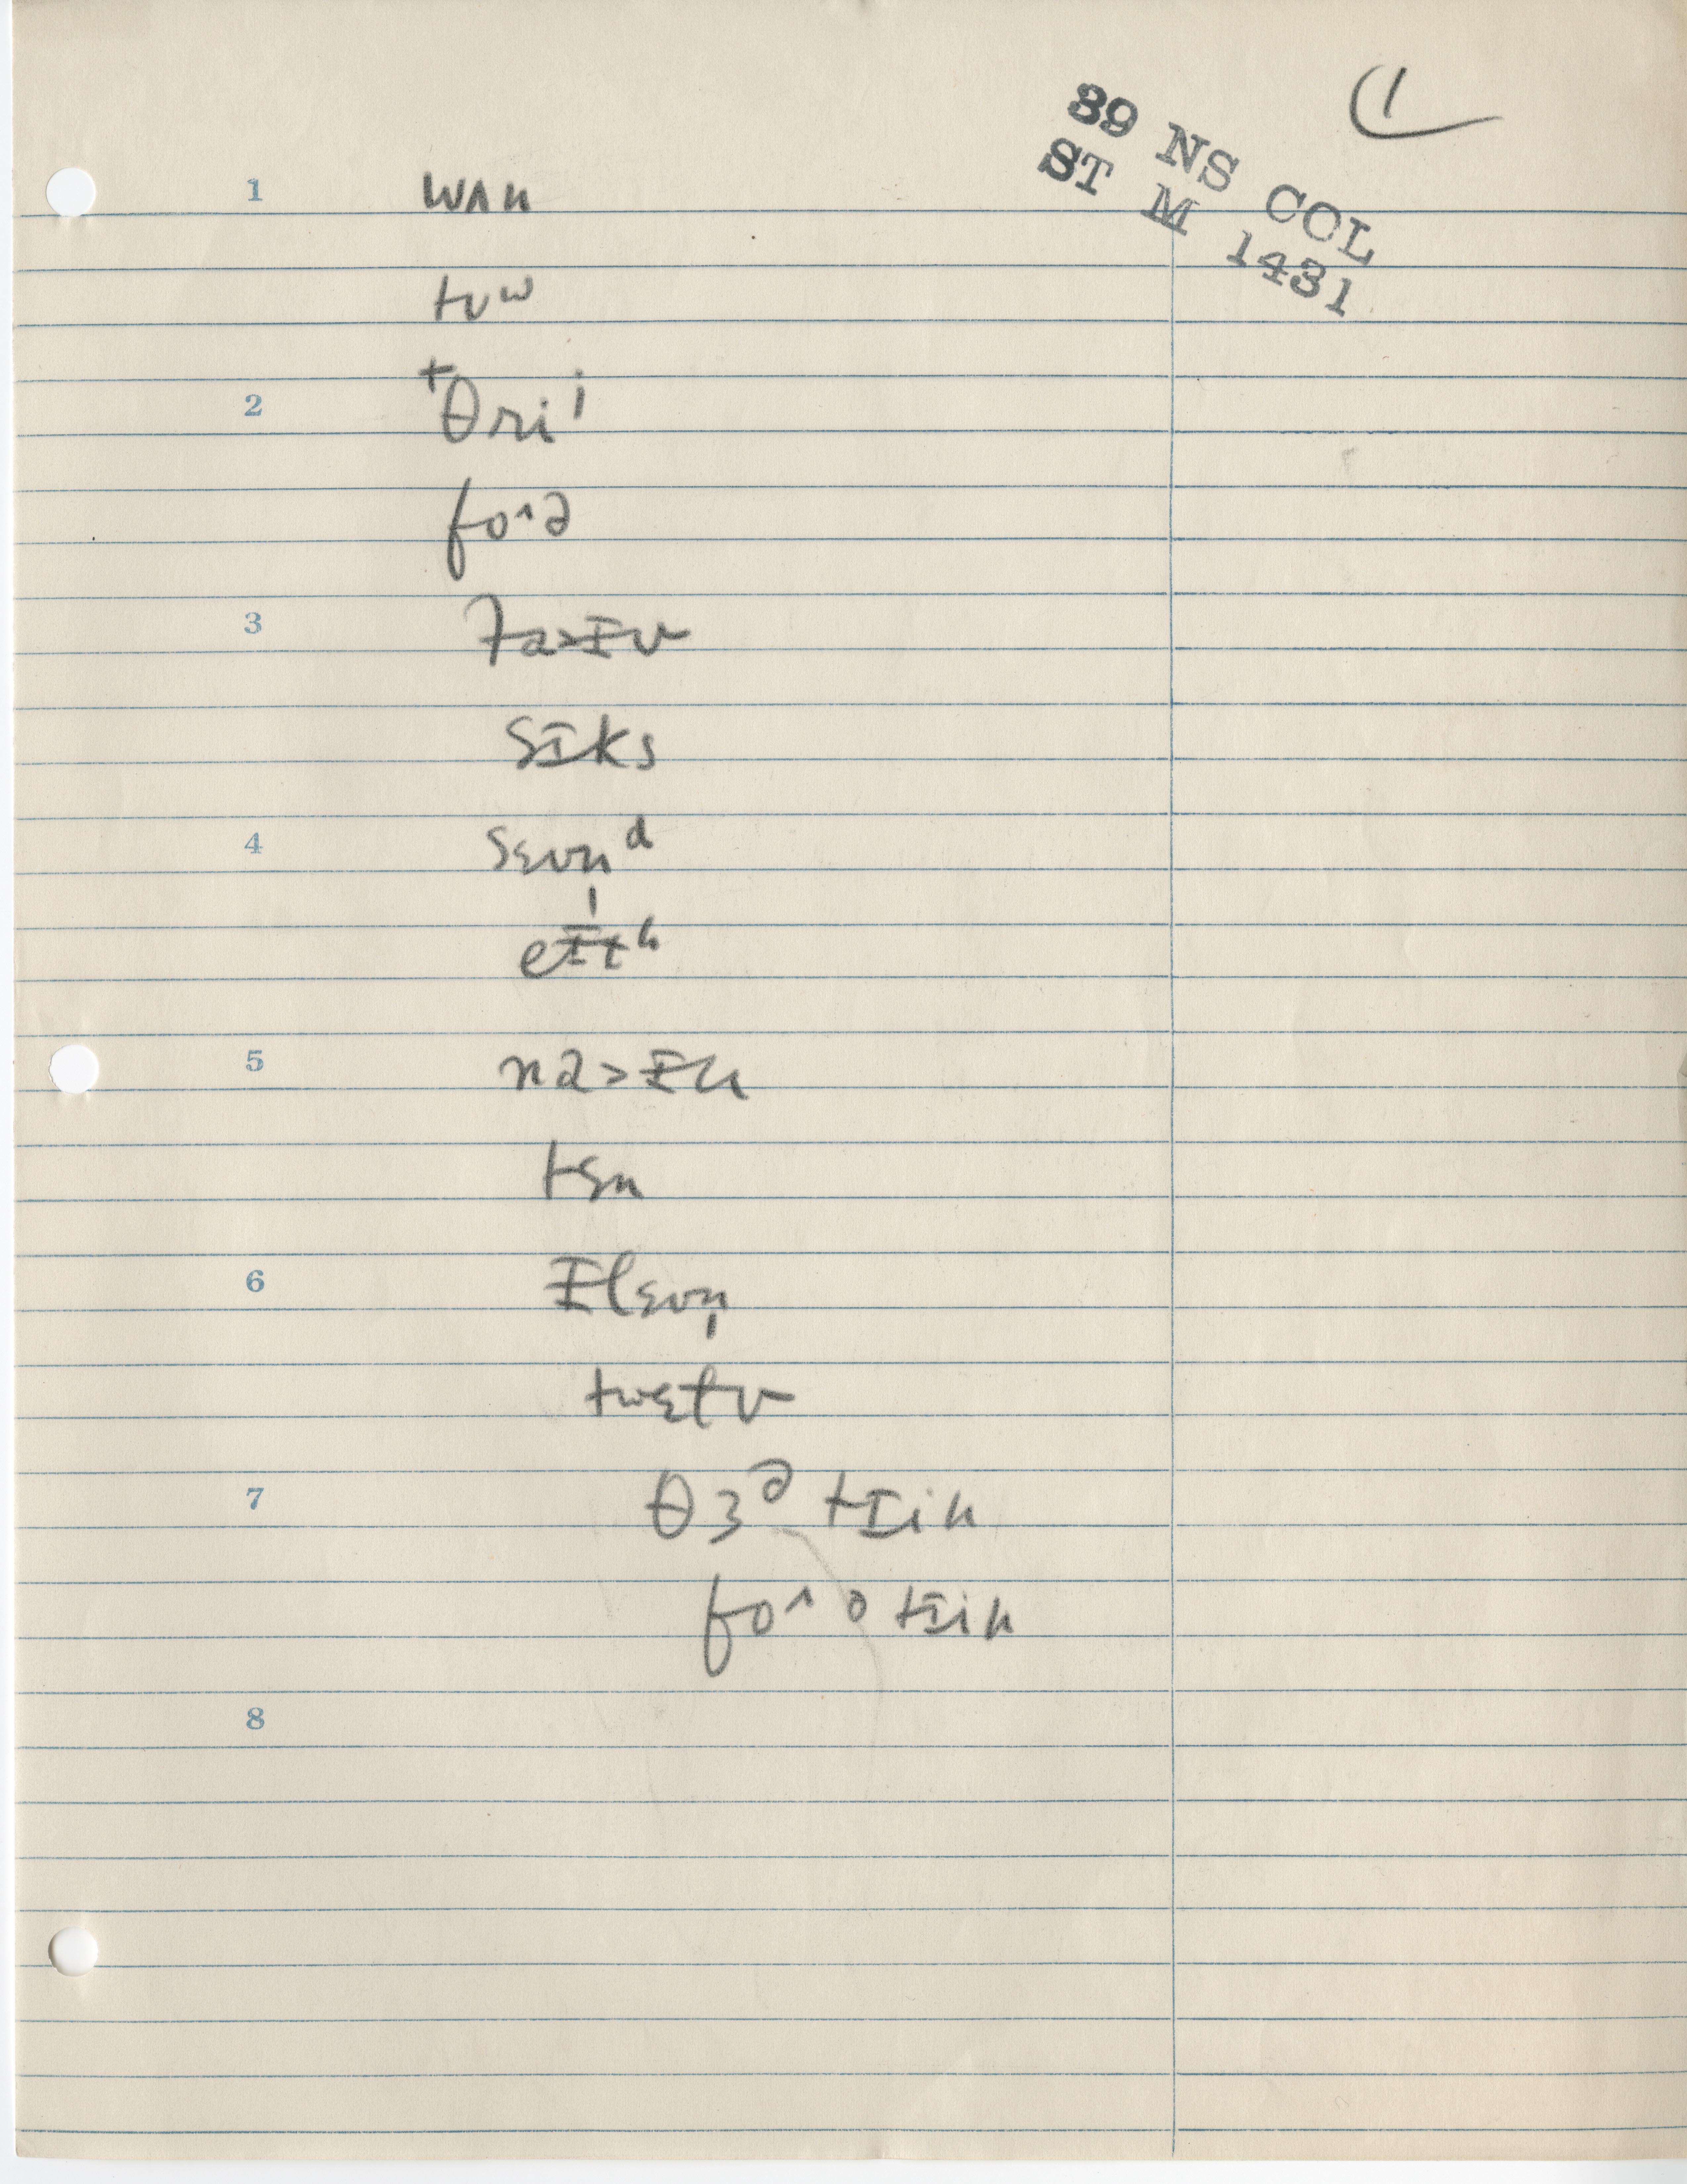 1
89 NS COL
ST M 1431
1 wʌn
tʊʷ
2 ᵗθriⁱ
fo˄ə
3 fa>ɪv
sɪks
4 sɛvn̩ᵈ
eɪtʰ
5 na>ɪn
tɛn
6 ɪlɛvn̩
twɛlv
7 θɜᵊ tɪin
fo˄ə tɪin
8